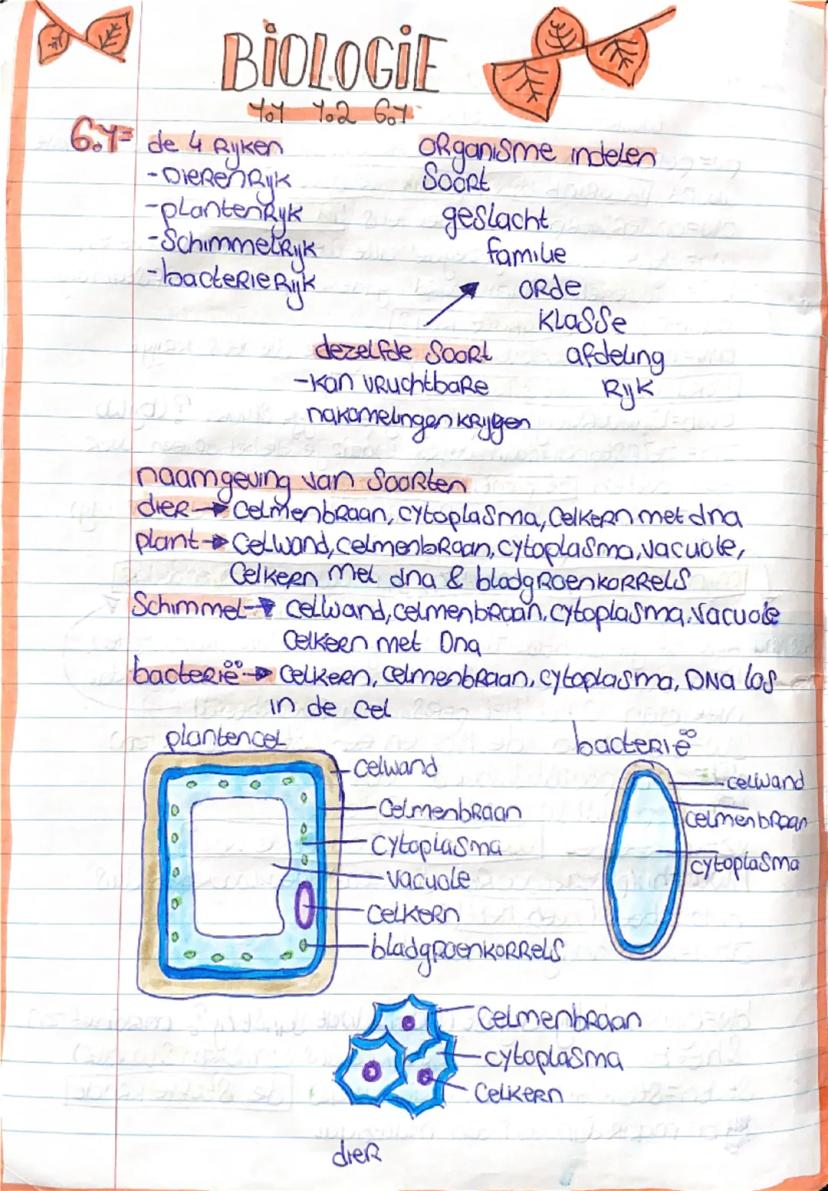 BIOLOGIE
4.1 4.2 6.4
6.4= de 4 Rijken
-DIERENRijk
-plantenRijk
-SchimmelRijk
-bacteRieRijk
ORganisme indelen
SOORt
geslacht
familie
ORde
Klasse
afdeling
Rijk
dezelfde SOORt
-kan vRuchtbaRe
nakomelingen kRijgen
naamgeving van SOORten
dieR → Celmenbraan, cytoplasma, Celkern met dna
plant → Celwand, celmenbraan, cytoplasma, vacuole,
Celkern met dna & bladgRoenkorrels
Schimmel → cellwand, celmenbraan, cytoplasma, Vacuole
Celkern met Dna
bacterië → Celkern, celmenbraan, cytoplasma, DNA los
in de cel
plantencel
celwand
Celmenbraan
cytoplasma
vacuole
celkern
bladgroenkorrels
bacterië
celwand
celmenbraan
cytoplasma
Celmenbraan
cytoplasma
Celkern
dieR